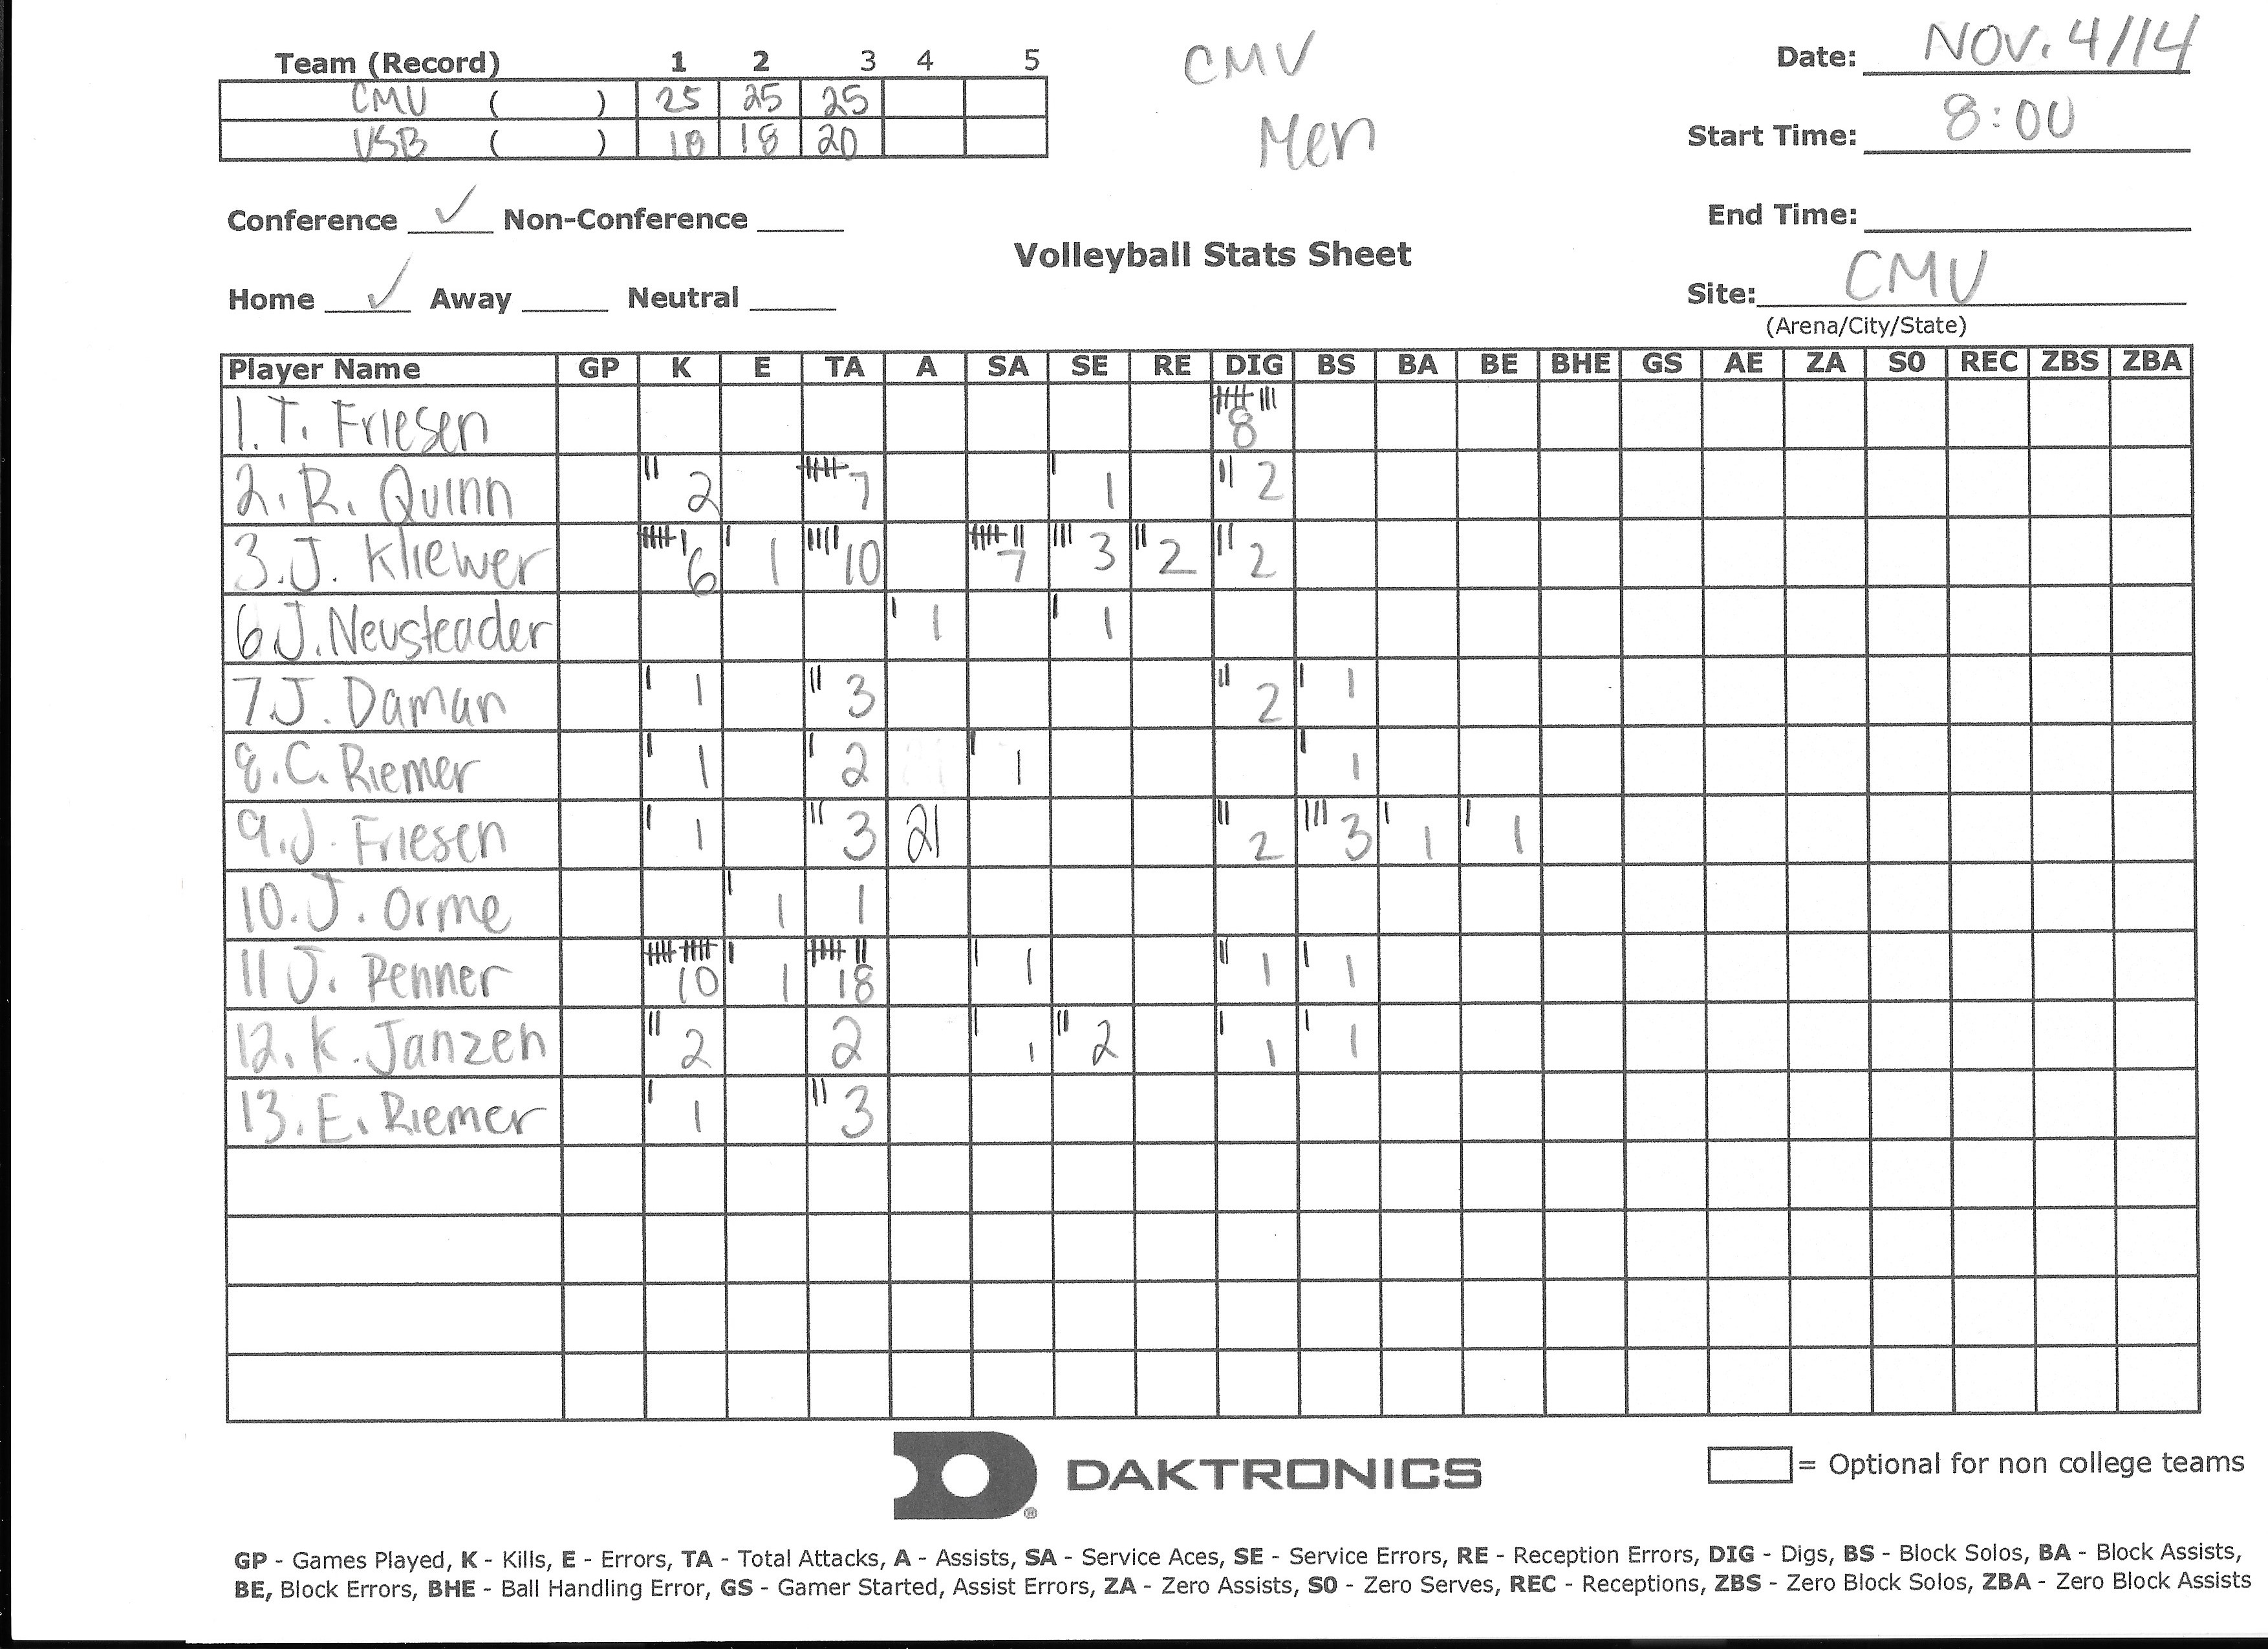 Team (Record) 1 2 3 4 5
CMU ( ) 25 25 25
USB ( ) 18 18 20
CMU
Men
Date: NOV. 4/14
Start Time: 8:00
End Time:
Conference ✓ Non-Conference
Volleyball Stats Sheet
Home ✓ Away Neutral
Site: CMU
(Arena/City/State)
Player Name GP K E TA A SA SE RE DIG BS BA BE BHE GS AE ZA S0 REC ZBS ZBA
1. T. Friesen 8
2. R. Quinn 2 7 1 2
3. J. Kliewer 6 1 10 7 3 2 2
6 J. Neusteader 1 1
7 J. Daman 1 3 2 1
8. C. Riemer 1 2 1 1
9. J. Friesen 1 3 21 2 3 1 1
10. J. Orme 1 1
11 J. Penner 10 1 18 1 1 1
12. K. Janzen 2 2 1 2 1 1
13. E. Riemer 1 3
DAKTRONICS
= Optional for non college teams
GP - Games Played, K - Kills, E - Errors, TA - Total Attacks, A - Assists, SA - Service Aces, SE - Service Errors, RE - Reception Errors, DIG - Digs, BS - Block Solos, BA - Block Assists,
BE, Block Errors, BHE - Ball Handling Error, GS - Gamer Started, Assist Errors, ZA - Zero Assists, S0 - Zero Serves, REC - Receptions, ZBS - Zero Block Solos, ZBA - Zero Block Assists